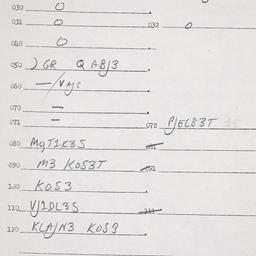 030 O
031 O 032 O
040 O
050 ) GR Q ABJ3
060 —/VAJC
070 =
071 = 072 PJEL83T
080 MQT1K35
090 M3 K053T 091
100 K053
110 VJ1DL35 111
120 KLAJN3 K053